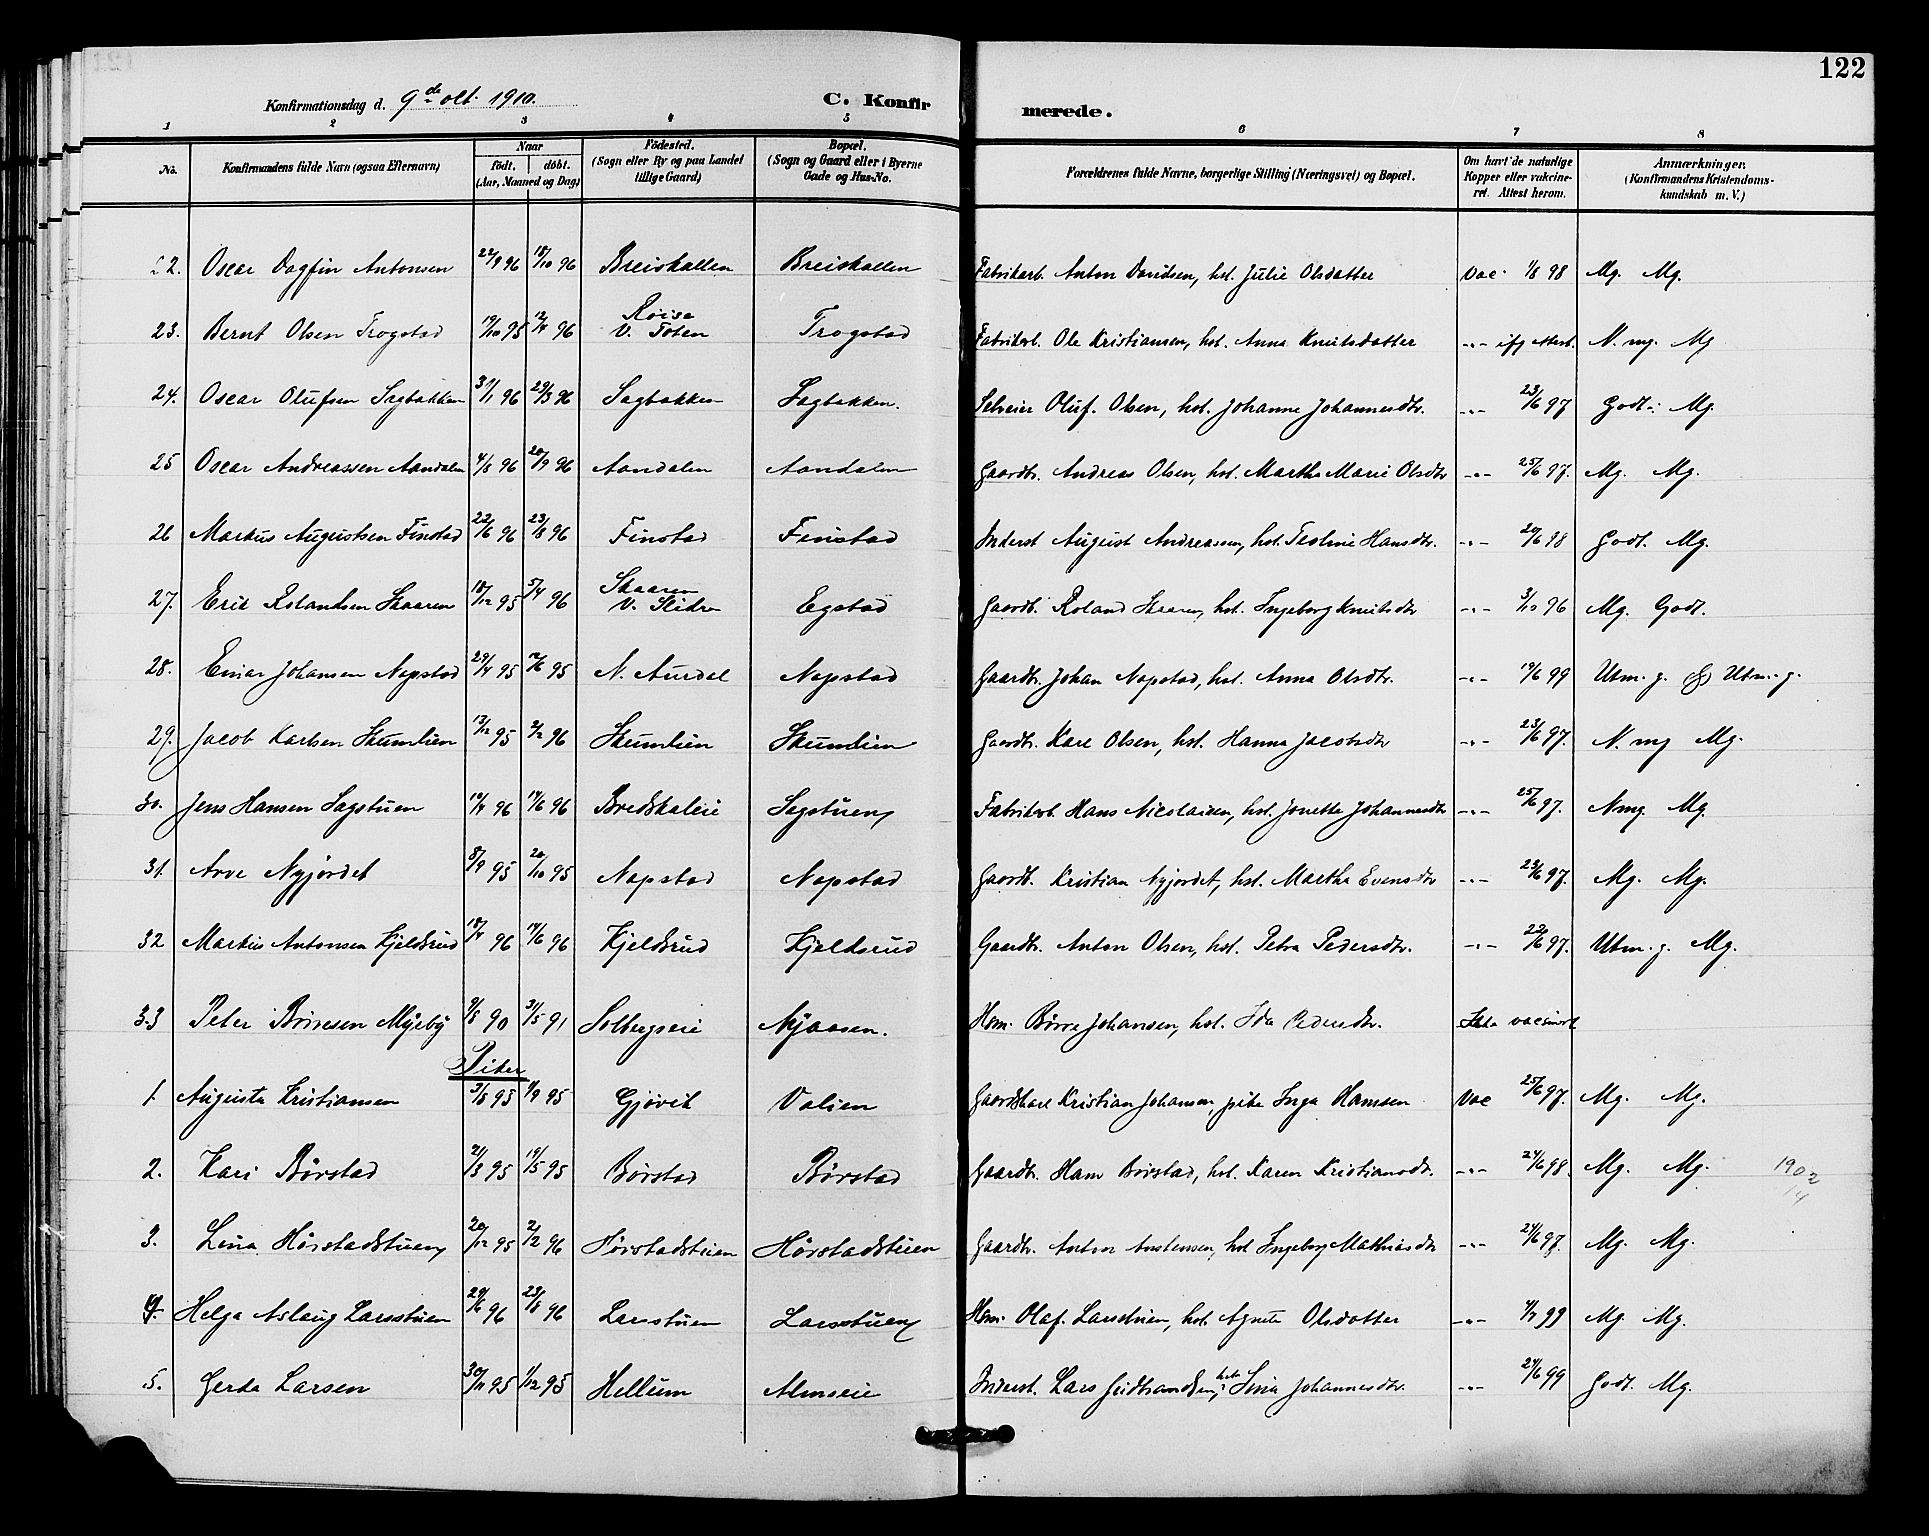 122
Konfirmationsdag d. 9de okt. 1910.
C. Konfir
merede.
1 2 3 4 5 6 7 8
No. Konfirmandens fulde Navn (ogsaa Efternavn) Naar født. døbt. (Aar, Maaned og Dag) Fødested. (Sogn eller By og paa Landet tillige Gaard) Bopæl. (Sogn og Gaard eller i Byerne Gade og Hus-No. Forældrenes fulde Navne, borgerlige Stilling (Næringsvei) og Bopæl. Om havt de naturlige Kopper eller vakcineret. Attest herom. Anmærkninger. (Konfirmandens Kristendomskundskab m. V.)
22. Oscar Dagfin Antonsen 22/9 96 18/10 96 Breiskallen Breiskallen Fabrikarb. Anton Davidsen, hst. Julie Olsdatter Vac. 1/8 98 Mg. Mg.
23. Bernt Olsen Trogstad 19/10 95 12/4 96 Røise V. Toten Trogstad Fabrikarb. Ole Kristiansen, hst. Anna Knutsdatter -"- ifg attest. N. mg. Mg
24. Oscar Olufsen Sagbakken 31/1 96 29/3 96 Sagbakken Sagbakken. Selveier Oluf. Olsen, hst. Johanne Johannesdtr. -"- 23/6 97 Godt. Mg.
25 Oscar Andreassen Aandalen 4/8 96 20/9 96 Aandalen Aandalen Gaardbr. Andreas Olsen, hst. Martha Marie Olsdtr -"- 25/6 97. Mg. Mg.
26 Markus Augustsen Finstad 22/6 96 23/8 96 Finstad Finstad Inderst August Andreasen, hst. Teoline Hansdtr. -"- 20/6 98 Godt. Mg.
27. Erik Rolandsen Skaaren 18/12 95 5/4 96 Skaaren V. Slidre Egstad Gaardb. Roland Skaaren, hst. Ingeborg Knutsdtr -"- 3/10 96 Mg. Godt.
28. Einar Johansen Napstad 29/4 95 12/6 95 N. Aurdal Napstad Gaardbr. Johan Napstad, hst. Anna Olsdtr. -"- 19/6 99 Utm. g. Utm. g.
29. Jacob Karlsen Skumlien 13/12 95 2/2 96 Skumlien Skumlien Gaardbr. Karl Olsen, hst. Hanna Jacobsdtr -"- 23/6 97. N. mg Mg.
30. Jens Hansen Sagstuen 10/4 96 14/6 96 Bredskaleie Sagstuen Fabrikarb. Hans Nicolaisen, hst. Jonette Johannesdtr -"- 25/6 97. N mg. Mg.
31. Arve Nyjordet 8/9 95 20/10 95 Napstad Napstad Gaardb. Kristian Nyjordet, hst. Martha Evensdtr -"- 23/6 97. Mg. Mg.
32 Markus Antonsen Kjeldsrud 18/4 96 14/6 96 Kjeldsrud Kjeldsrud Gaardbr. Anton Olsen, hst. Petra Pedersdtr. -"- 22/6 97. Utm. g. Mg.
33 Peter Børresen Myeby 9/8 90 31/5 91 Solbergseie Nyaasen. Hsm. Børre Johansen, hst. Ida Pedersdtr. Ikke vaccinert
Piker
1. Augusta Kristiansen 3/8 95 1/9 95 Gjøvik Valien Gaardskarl Kristian Johansen, pike Inga Hansen Vac 25/6 97. Mg. Mg.
2. Kari Børstad 21/3 95 19/5 95 Børstad Børstad Gaardbr. Hans Børstad, hst. Karen Kristiansdtr. -"- 24/6 98. Mg. Mg. 1902 14
3. Lina Hørstadstuen 20/12 95 2/2 96 Hørstadstuen Hørstadstuen Gaardbr. Anton Anstensen, hst Ingeborg Mathiasdtr -"- 24/6 97. Mg. Mg.
4. Helga Aslaug Larsstuen 29/6 96 23/8 96 Larsstuen Larsstuen Hsm. Olaf. Larsstuen, hst. Agnete Olsdatter -"- 4/7 99 Mg. Mg.
5. Gerda Larsen 30/11 95 1/12 95 Hellum Almseie Inderst. Lars Gudbrandsen, hst. Lina Johannesdtr. -"- 24/6 99 Godt. Mg.